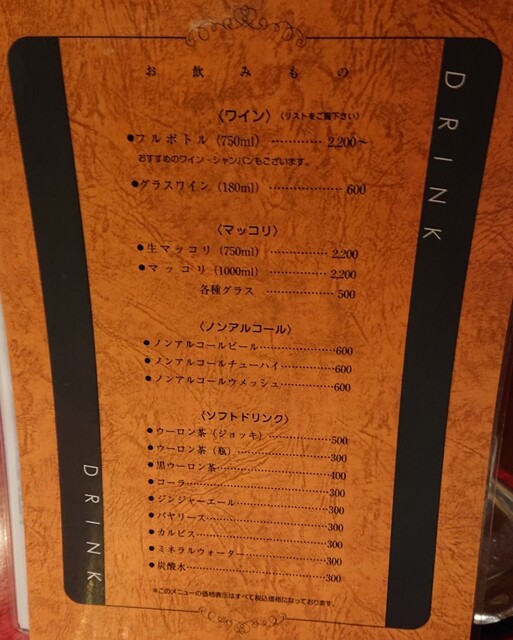 お飲みもの
〈ワイン〉（リストをご覧下さい）
●フルボトル（750ml）…………2,200〜
おすすめのワイン・シャンパンもございます。
●グラスワイン（180ml）…………600
〈マッコリ〉
●生マッコリ（750ml）…………2,200
●マッコリ（1000ml）…………2,200
各種グラス…………500
〈ノンアルコール〉
●ノンアルコールビール…………600
●ノンアルコールチューハイ…………600
●ノンアルコールウメッシュ…………600
〈ソフトドリンク〉
●ウーロン茶（ジョッキ）…………500
●ウーロン茶（瓶）…………300
●黒ウーロン茶…………400
●コーラ…………300
●ジンジャーエール…………300
●バヤリース…………300
●カルピス…………300
●ミネラルウォーター…………300
●炭酸水…………300
※このメニューの価格表示はすべて税込価格になっております。
DRINK
DRINK